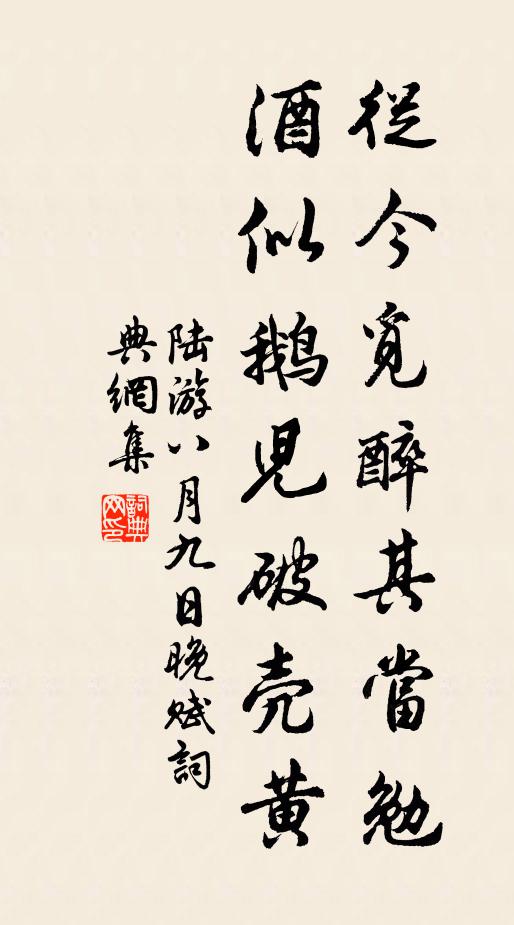 從今覓醉其當勉
酒似鵝児破壳黄
陸游八月九日晚賦詞
典網集
詞典
网印